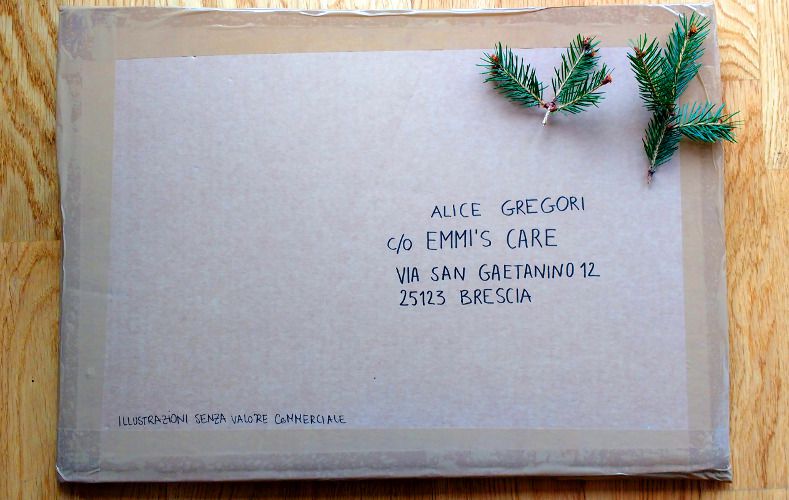 ALICE GREGORI
c/o EMMI'S CARE
VIA SAN GAETANINO 12
25123 BRESCIA
ILLUSTRAZIONI SENZA VALORE COMMERCIALE